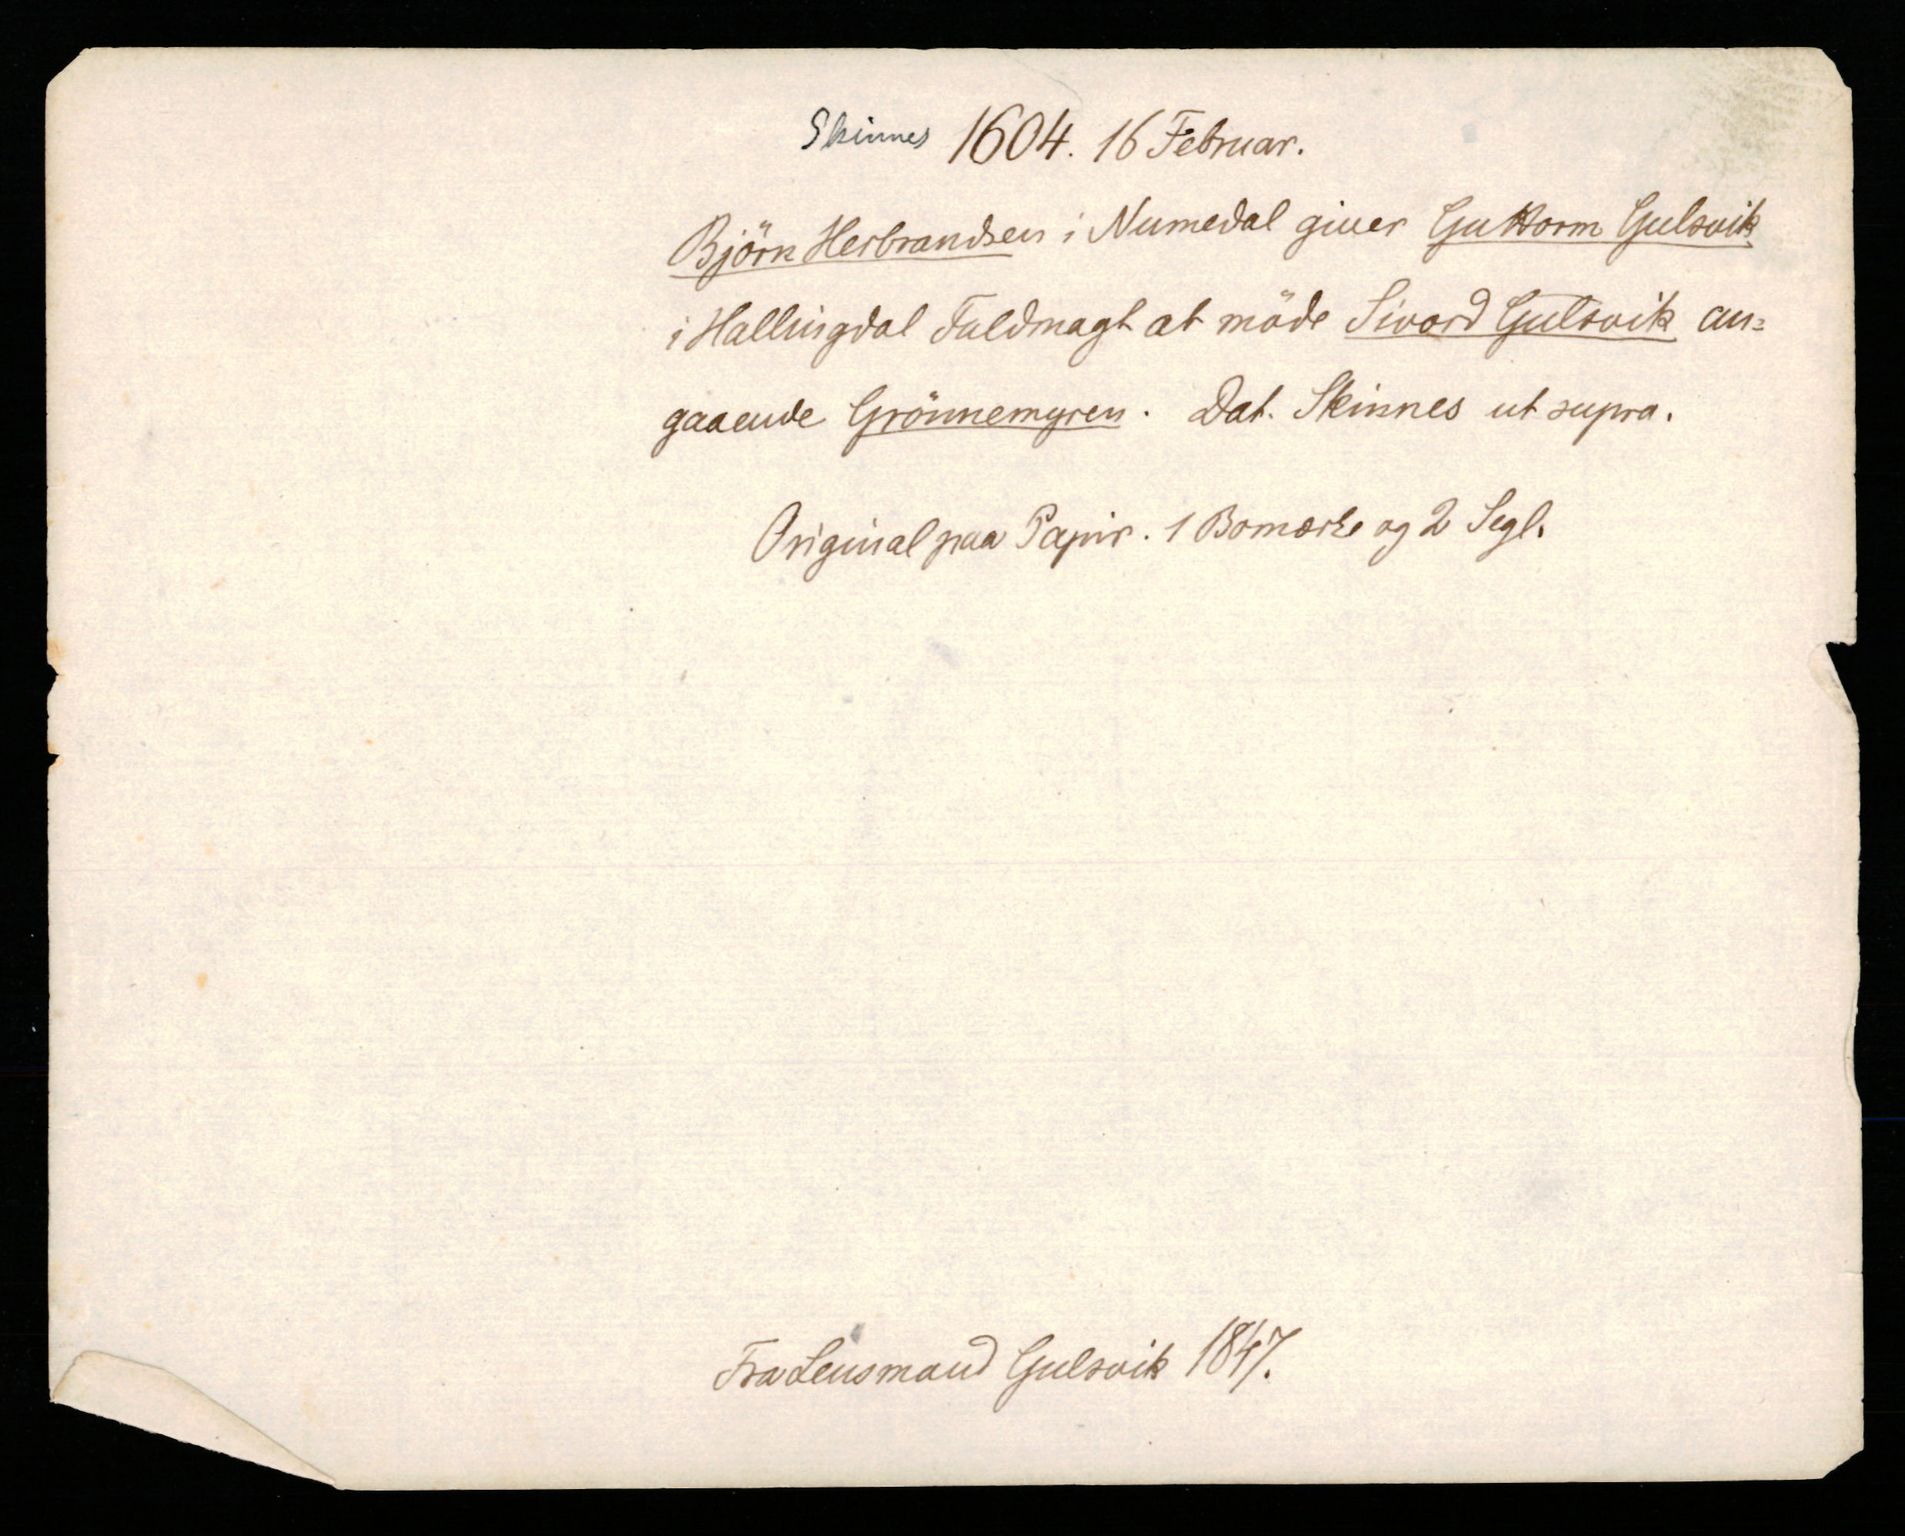 Skinnes 1604. 16 Februar.
Björn Herbrandsen i Numedal giver Guttorm Gulsvik
i Hallingdal Fuldmagt at möde Sivord Gulsvik an=
gaaende Grönnemyren. Dat. Skinnes ut supra.
Original paa Papir. 1 Bomærke og 2 Segl.
Fra Lensmand Gulsvik 1847.